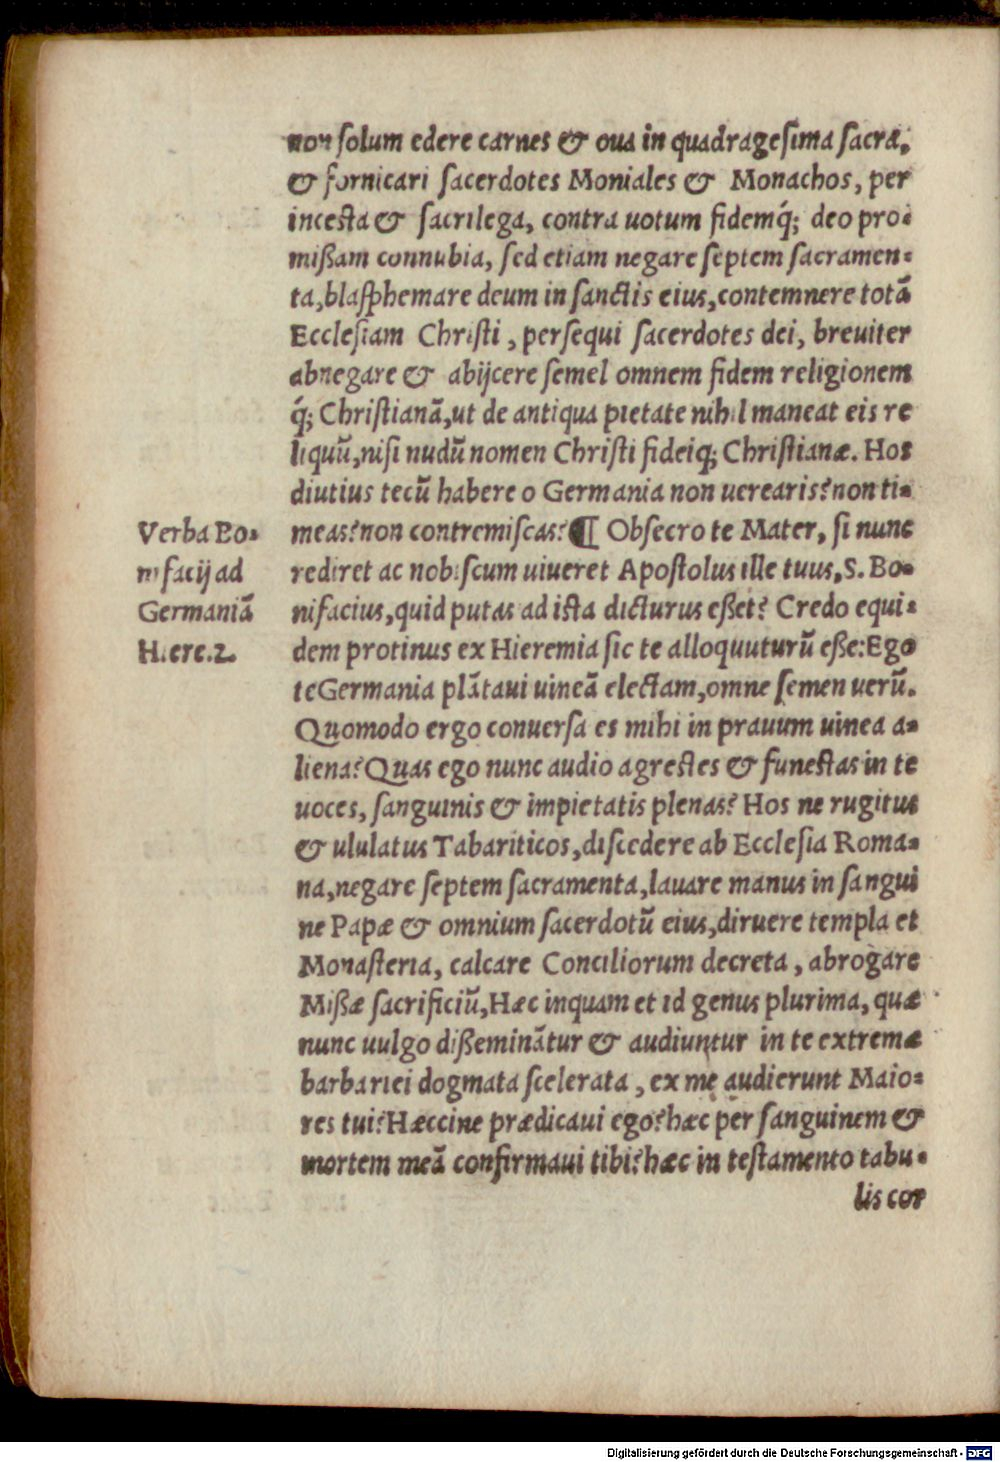 non ſolum edere carnes & oua in quadrageſima ſacra,
& fornicari ſacerdotes Moniales & Monachos, per
inceſta & ſacrilega, contra uotum fidemq́; deo pro-
mißam connubia, ſed etiam negare ſeptem ſacramen-
ta, blaſphemare deum in ſanctis eius, contemnere totã
Eccleſiam Chriſti, perſequi ſacerdotes dei, breuiter
abnegare & abijcere ſemel omnem fidem religionem
q́; Chriſtianã, ut de antiqua pietate nihil maneat eis re
liquũ, niſi nudũ nomen Chriſti fideiq́; Chriſtianæ. Hos
diutius tecũ habere o Germania non uerearis? non ti-
meas? non contremiſcas? ¶ Obſecro te Mater, ſi nunc
rediret ac nobiſcum uiueret Apoſtolus ille tuus, S. Bo-
nifacius, quid putas ad iſta dicturus eßet? Credo equi-
dem protinus ex Hieremia ſic te alloquuturũ eße: Ego
te Germania plãtaui uineã electam, omne ſemen uerũ.
Quomodo ergo conuerſa es mihi in prauum uinea a-
liena? Quas ego nunc audio agreſtes & funeſtas in te
uoces, ſanguinis & impietatis plenas? Hos ne rugitus
& ululatus Tabariticos, diſcedere ab Eccleſia Roma-
na, negare ſeptem ſacramenta, lauare manus in ſangui
ne Papæ & omnium ſacerdotũ eius, diruere templa et
Monaſteria, calcare Conciliorum decreta, abrogare
Mißæ ſacrificiũ, Hæc inquam et id genus plurima, quæ
nunc uulgo dißeminãtur & audiuntur in te extremæ
barbariei dogmata ſcelerata, ex me audierunt Maio-
res tui? Hæccine prædicaui ego? hæc per ſanguinem &
mortem meã confirmaui tibi? hæc in teſtamento tabu-
lis cor
Verba Bo-
nifacij ad
Germaniã
Hiere.2.
Digitalisierung gefördert durch die Deutsche Forschungsgemeinschaft - DFG